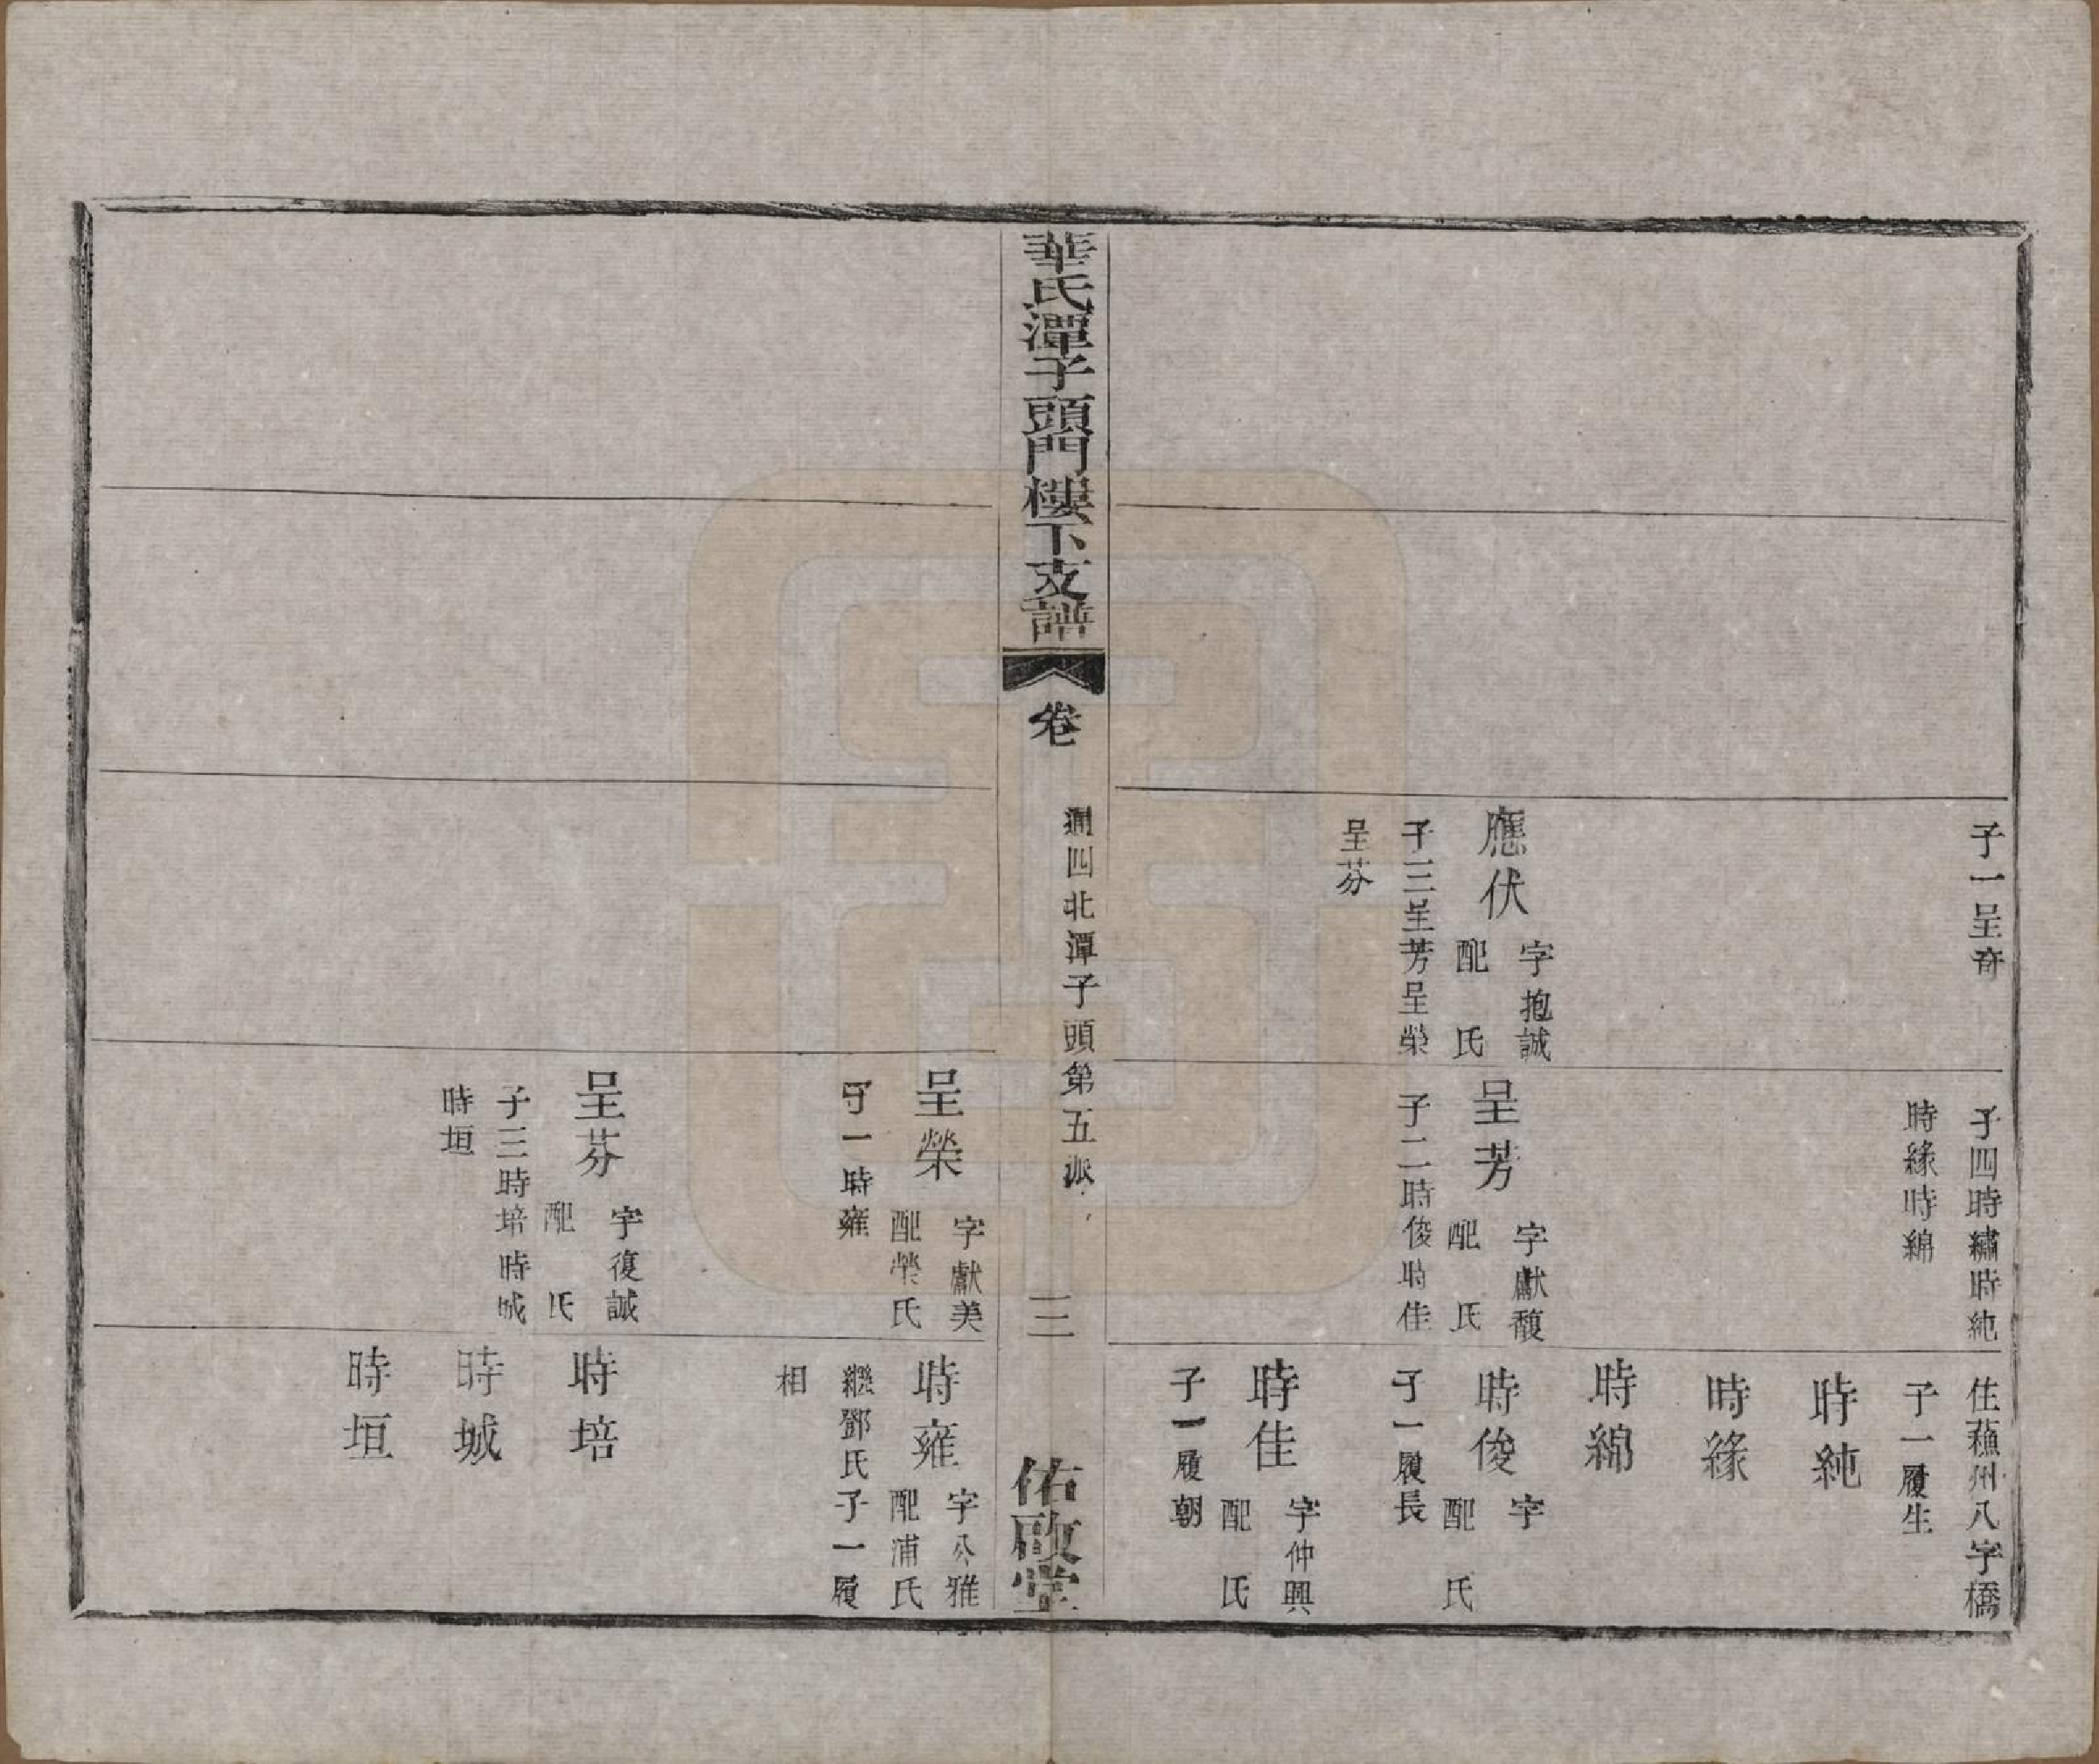 子一呈奇
應伏
字抱誠
配　氏
子三呈芳呈榮
呈芬
子四時繡時純
時緣時綿
呈芳
字獻馥
配　氏
子二時俊時佳
住蘓州八字橋
子一履生
時純
時緣
時綿
時俊
字
配　氏
子一履長
時佳
字仲興
配　氏
子一履朝
華氏潭子頭門樓下支譜
卷
澗四北潭子頭第五派
三
佑啟堂
呈榮
字獻美
配榮氏
子一時雍
呈芬
字復誠
配　氏
子三時培時城
時垣
時雍
字公雅
配浦氏
繼鄧氏子一履
相
時培
時城
時垣